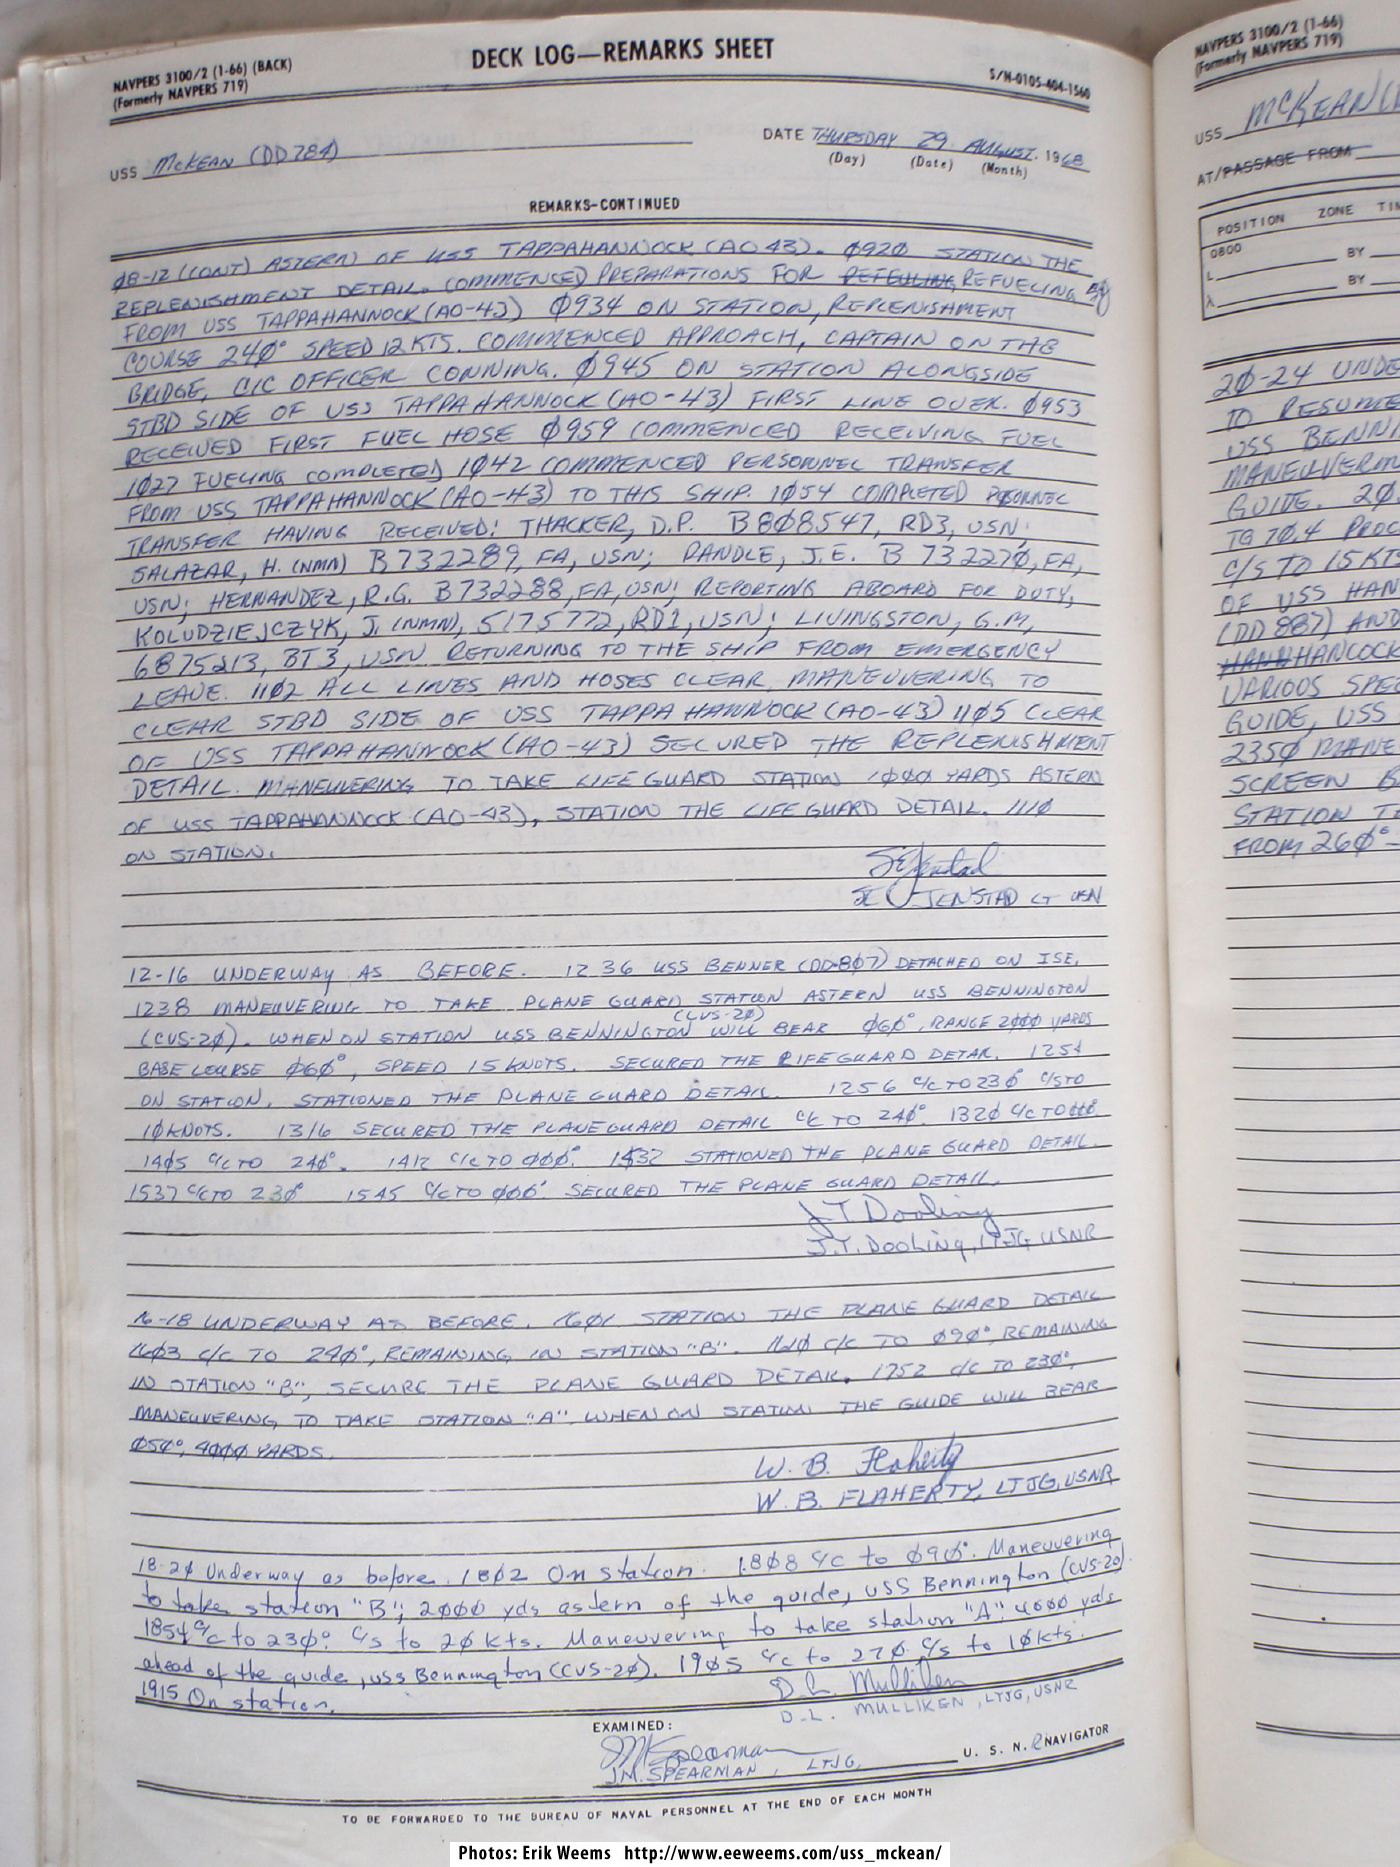 NAVPERS 3100/2 (1-66) (BACK)
(Formerly NAVPERS 719)
DECK LOG—REMARKS SHEET
S/N-0105-404-1560
USS McKEAN (DD784)
DATE THURSDAY 29 AUGUST, 1968
(Day) (Date) (Month)
REMARKS-CONTINUED
Ø8-12 (CONT) ASTERN OF USS TAPPAHANNOCK (AO 43). Ø92Ø STATION THE
REPLENISHMENT DETAIL. COMMENCED PREPARATIONS FOR REFEULING REFUELING
FROM USS TAPPAHANNOCK (AO-43) Ø934 ON STATION, REPLENISHMENT
COURSE 24Ø° SPEED 12 KTS. COMMENCED APPROACH, CAPTAIN ON THE
BRIDGE, CIC OFFICER CONNING. Ø945 ON STATION ALONGSIDE
STBD SIDE OF USS TAPPAHANNOCK (AO-43) FIRST LINE OVER. Ø953
RECEIVED FIRST FUEL HOSE Ø959 COMMENCED RECEIVING FUEL
1Ø27 FUELING COMPLETED 1Ø42 COMMENCED PERSONNEL TRANSFER
FROM USS TAPPAHANNOCK (AO-43) TO THIS SHIP. 1Ø54 COMPLETED PERSONNEL
TRANSFER HAVING RECEIVED: THACKER, D.P. B8Ø8547, RD3, USN;
SALAZAR, H. (NMN) B732289, FA, USN; DANDLE, J.E. B 73227Ø, FA,
USN; HERNANDEZ, R.G. B732288, FA, USN; REPORTING ABOARD FOR DUTY,
KOLUDZIEJCZYK, J. (NMN), 5175772, RD1, USN; LIVINGSTON, G.M,
6875213, BT3, USN RETURNING TO THE SHIP FROM EMERGENCY
LEAVE. 11Ø2 ALL LINES AND HOSES CLEAR, MANEUVERING TO
CLEAR STBD SIDE OF USS TAPPAHANNOCK (AO-43) 11Ø5 CLEAR
OF USS TAPPAHANNOCK (AO-43) SECURED THE REPLENISHMENT
DETAIL. MANEUVERING TO TAKE LIFEGUARD STATION 1ØØØ YARDS ASTERN
OF USS TAPPAHANNOCK (AO-43), STATION THE LIFEGUARD DETAIL. 111Ø
ON STATION.
SE Jenstad
SE JENSTAD LT USN
12-16 UNDERWAY AS BEFORE. 1236 USS BENNER (DD-8Ø7) DETACHED ON ISE.
1238 MANEUVERING TO TAKE PLANE GUARD STATION ASTERN USS BENNINGTON
(CVS-2Ø)
(CVS-2Ø). WHEN ON STATION USS BENNINGTON WILL BEAR Ø6Ø°, RANGE 2ØØØ YARDS
BASE COURSE Ø6Ø°, SPEED 15 KNOTS. SECURED THE LIFEGUARD DETAIL. 1254
ON STATION. STATIONED THE PLANE GUARD DETAIL. 1256 C/C TO 23Ø C/S TO
1Ø KNOTS. 1316 SECURED THE PLANEGUARD DETAIL C/C TO 24Ø°. 132Ø C/C TO
14Ø5 C/C TO 24Ø°. 1412 C/C TO ØØØ°. 1532 STATIONED THE PLANE GUARD DETAIL.
1537 C/C TO 23Ø° 1545 C/C TO SECURED THE PLANE GUARD DETAIL.
J T Dooling
J.T. Dooling, LTJG, USNR
16-18 UNDERWAY AS BEFORE. 16Ø1 STATION THE PLANE GUARD DETAIL
16Ø3 C/C TO 24Ø°, REMAINING IN STATION "B". 161Ø C/C TO Ø9Ø°, REMAINING
IN STATION "B", SECURE THE PLANE GUARD DETAIL. 1752 C/C TO 23Ø°,
MANEUVERING TO TAKE STATION "A" WHEN ON STATION THE GUIDE WILL BEAR
Ø5Ø°, 4ØØØ YARDS.
W. B. Flaherty
W. B. FLAHERTY, LTJG, USNR
18-2Ø Underway as before. 18Ø2 On station. 18Ø8 C/C to Ø9Ø°. Maneuvering
to take station "B"; 2ØØØ yds astern of the guide, USS Bennington (CVS-20).
1854 C/C to 23Ø° C/S to 2Ø kts. Maneuvering to take station "A"; 4000 yds
ahead of the guide, USS Bennington (CVS-2Ø). 19Ø5 C/C to 27Ø C/S to 1Økts.
1915 On station.
D. L. Mulliken
D. L. MULLIKEN, LTJG, USNR
EXAMINED:
JM Spearman
J.M. SPEARMAN, LTJG, U. S. N. R NAVIGATOR
TO BE FORWARDED TO THE BUREAU OF NAVAL PERSONNEL AT THE END OF EACH MONTH
NAVPERS 3100/2 (1-66)
(Formerly NAVPERS 719)
USS McKEAN
AT/PASSAGE FROM
POSITION ZONE
0800
L BY
λ BY
2Ø-24 UNDE
TO RESUME
USS BENNI
MANEUVERIN
GUIDE. 2Ø
TG 7Ø.4 PROC
C/S TO 15 KTS
OF USS HAN
(DD 887) AND
HANN HANCOCK
VARIOUS SPEE
GUIDE, USS
235Ø MANE
SCREEN B
STATION TI
FROM 26Ø°-
Photos: Erik Weems http://www.eeweems.com/uss_mckean/